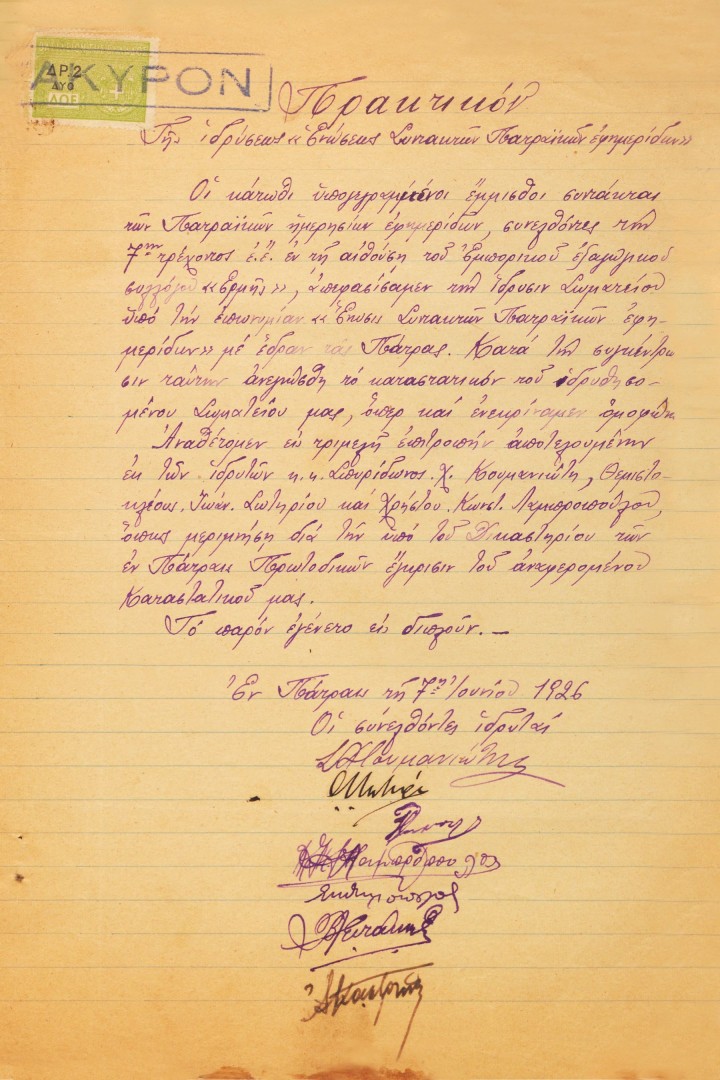 ΔΡ.2
ΔΥΟ
ΑΚΥΡΟΝ
Πρακτικόν
Τῆς ἱδρύσεως «Ἑνώσεως Συντακτῶν Πατραϊκῶν ἐφημερίδων»
Οἱ κάτωθι ὑπογεγραμμένοι ἔμμισθοι συντάκται
τῶν Πατραϊκῶν ἡμερησίων ἐφημερίδων, συνελθόντες τὴν
7ην τρέχοντος ἐ.ἔ. ἐν τῇ αἰθούσῃ τοῦ Ἐμπορικοῦ ἐξαγωγικοῦ
συλλόγου «Ἑρμῆς», ἀπεφασίσαμεν τὴν ἵδρυσιν Σωματείου
ὑπὸ τὴν ἐπωνυμίαν «Ἕνωσις Συντακτῶν Πατραϊκῶν ἐφη-
μερίδων» μὲ ἕδραν τὰς Πάτρας. Κατὰ τὴν συγκέντρω
σιν ταύτην ἀνεγνώσθη τὸ καταστατικὸν τοῦ ἱδρυθησο-
μένου Σωματείου μας, ὅπερ καὶ ἐνεκρίναμεν ὁμοφώ
Ἀναθέτομεν εἰς τριμελῆ ἐπιτροπὴν ἀποτελουμένην
ἐκ τῶν ἱδρυτῶν κ.κ. Σπυρίδωνος. Χ. Κουμανιώτη, Θεμιστο-
κλέους. Ἰωάν. Σωτηρίου καὶ Χρήστου. Κωνστ. Λαμπροπούλου,
ὅπως μεριμνήσῃ διὰ τὴν ὑπὸ τοῦ Δικαστηρίου τῶν
ἐν Πάτραις Πρωτοδικῶν ἔγκρισιν τοῦ ἀναφερομένου
Καταστατικοῦ μας.
Τὸ παρὸν ἐγένετο εἰς διπλοῦν. —
Ἐν Πάτραις τῇ 7ῃ Ἰουνίου 1926
Οἱ συνελθόντες ἱδρυταὶ
ΣΧΚουμανιώτης